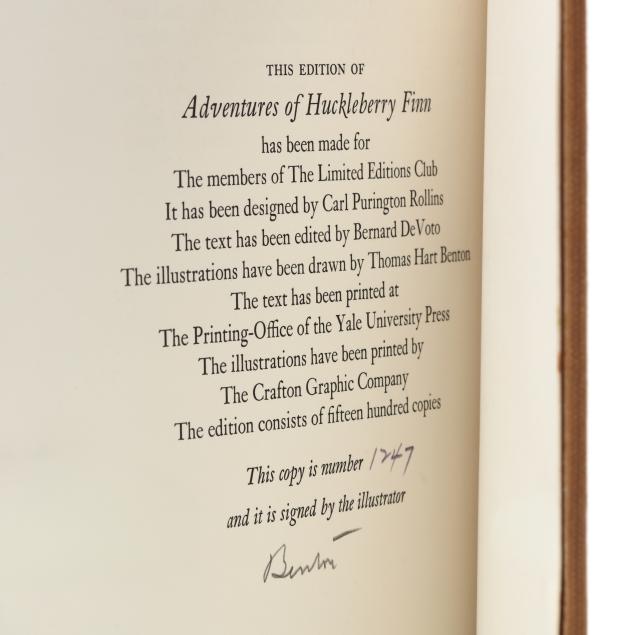 THIS EDITION OF
Adventures of Huckleberry Finn
has been made for
The members of The Limited Editions Club
It has been designed by Carl Purington Rollins
The text has been edited by Bernard DeVoto
The illustrations have been drawn by Thomas Hart Benton
The text has been printed at
The Printing-Office of the Yale University Press
The illustrations have been printed by
The Crafton Graphic Company
The edition consists of fifteen hundred copies
This copy is number 1247
and it is signed by the illustrator
Benton